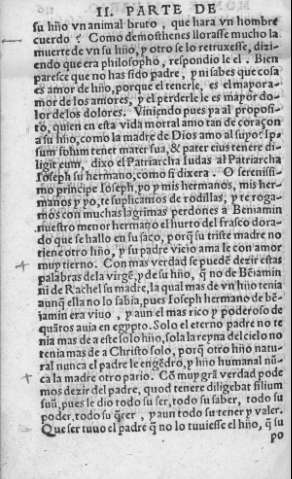 II. PARTE DE
su hijo vn animal bruto, que hara vn hombre
cuerdo? Como demosthenes llorasse mucho la
muerte de vn su hijo, y otro se lo retruxesse, dizi-
endo que era philosopho, respondio le el. Bien
paresce que no has sido padre, y ni sabes que cosa
es amor de hijo, porque el tenerle, es el mayor a-
mor de los amores, y el perderle le es mayor do-
lor de los dolores. Viniendo pues ya al proposi-
to, quien en esta vida mortal amo tan de coraçon
a su hijo, como la madre de Dios amo al suyo? Ip-
sum solum tenet mater sua, & pater eius tenere di-
ligit eum, dixo el Patriarcha Iudas al Patriarcha
Ioseph su hermano, como si dixera. O serenissi-
mo principe Ioseph, yo y mis hermanos, mis her-
manos y yo, te suplicamos de rodillas, y te roga-
mos con muchas lagrimas perdones a Beniamin
nuestro menor hermano el hurto del frasco dora-
do que se hallo en su saco, porq̃ su triste madre no
tiene otro hijo, y su padre viejo ama le con amor
muy tierno. Con mas verdad se puedẽ dezir estas
palabras de la virgẽ, y de su hijo, q̃ no de Bẽiamin
ni de Rachel su madre, la qual mas de vn hijo tenia
aunq̃ ella no lo sabia, pues Ioseph hermano de bẽ-
jamin era viuo, y aun el mas rico y poderoso de
quãtos auia en egypto. Solo el eterno padre no te
nia mas de a este solo hijo, sola la reyna del cielo no
tenia mas de a Christo solo, porq̃ otro hijo natu-
ral nunca el padre le engẽdro, y hijo humanal nũ-
ca la madre otro pario. Cõ muy grã verdad pode
mos dezir del padre, quod tenere diligebat filium
suũ, pues le dio todo su ser, todo su saber, todo su
poder, todo su q̃rer, y aun todo su tener y valer.
Que ser tuuo el padre q̃ no lo tuuiesse el hijo, q̃ su
po